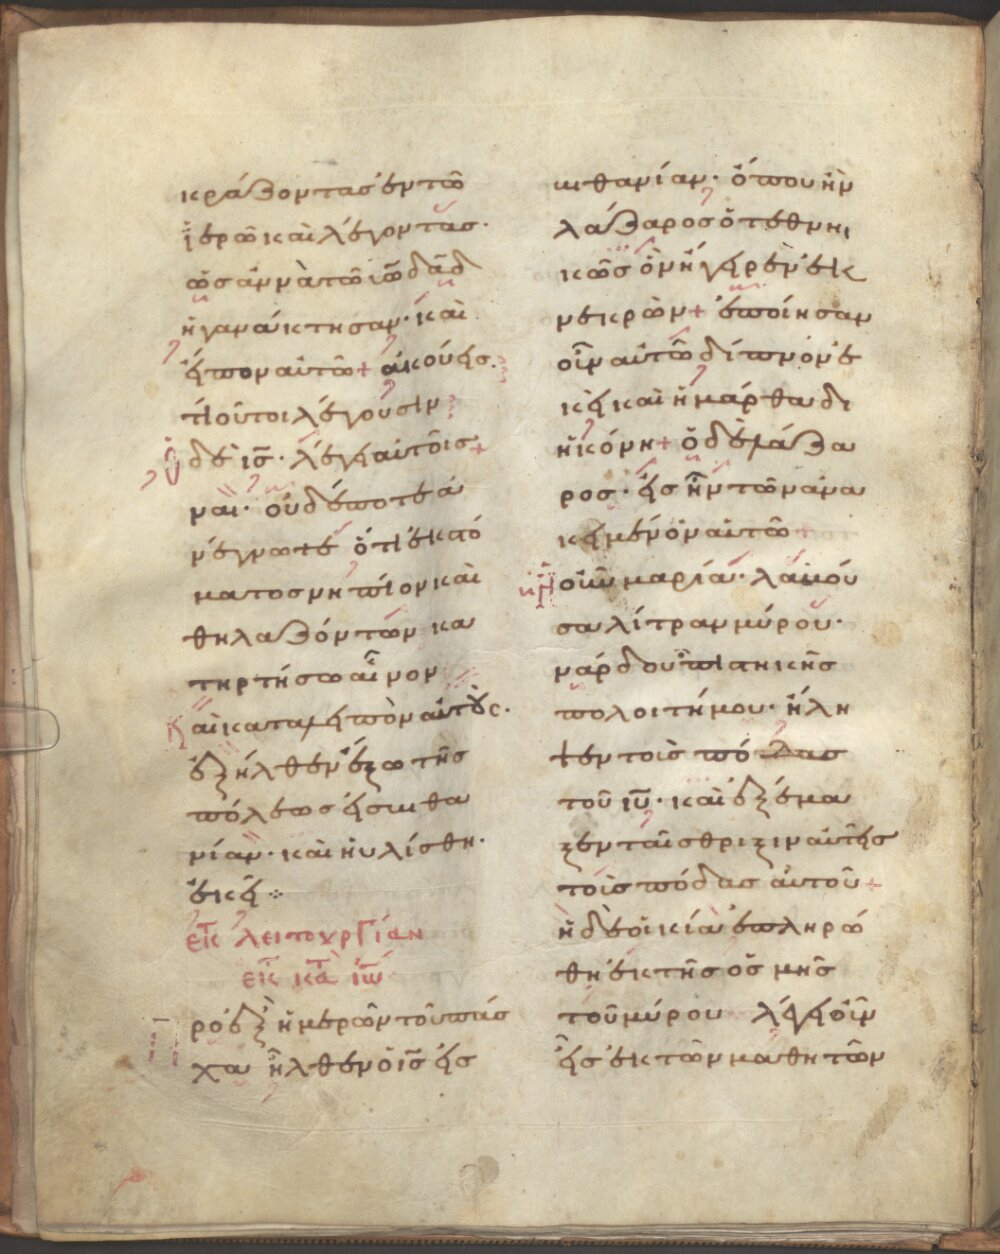 κράζοντας ἐν τῶ
ἱερῶ καὶ λέγοντας·
ὡσαννὰ τῶ υἱῶ δᾱδ
ἠγανάκτησαν· καὶ
εἶπον αὐτῶ + ἀκούεις
τί οὗτοι λέγουσιν
Ὁ δὲ ις̄· λέγει αὐτοῖς +
ναι· οὐδέποτε ἀ
νέγνωτε ὅτι ἐκ στό
ματος νηπίον καὶ
θηλαζόντων κα
τηρτήσω αἶνον
Καὶ καταλειπὸν αὐτοὺς·
ἐξῆλθεν ἔξω τῆς
πόλεως εἰς βιθα
νίαν· καὶ ηὐλίσθη·
ἐκεῖ ⁘
εἰς λειτουργίαν
ἐκ τοῦ κατὰ ἰω
Πρὸ ἐξ ἡμερῶν τοῦ πάσ
χα ἦλθεν ὁ ις̄ εἰς
βιθανίαν· ὅπου ἦν
λάζαρος ὁ τεθνη
κὼς ὃν ἤγειρεν ἐκ
νεκρῶν + ἐποίησαν
οὖν αὐτῶ δίπνον ἐ
κεῖ καὶ ἡ μάρθα δι
ηκόνη + ὁ δὲ λάζα
ρος· εἷς ἦν τῶν ἀνα
κειμενὸν αὐτῶ +
Ἡ οὖν μαρία· λαβού
σα λίτραν μύρου·
νάρδου πιστηκῆς
πολοιτήμου· ἤλη
ψεν τοὺς πόδας
τοῦ ιῡ· καὶ ἐξέμα
ξεν ταῖς θριξιν αὐτῆς
τοὺς πόδας αὐτοῦ +
ἡ δὲ οἰκία ἐπληρώ
θη ἐκ τῆς ὀσμῆς
τοῦ μύρου λέγει οὖν
εἷς ἐκ τῶν μαθητῶν